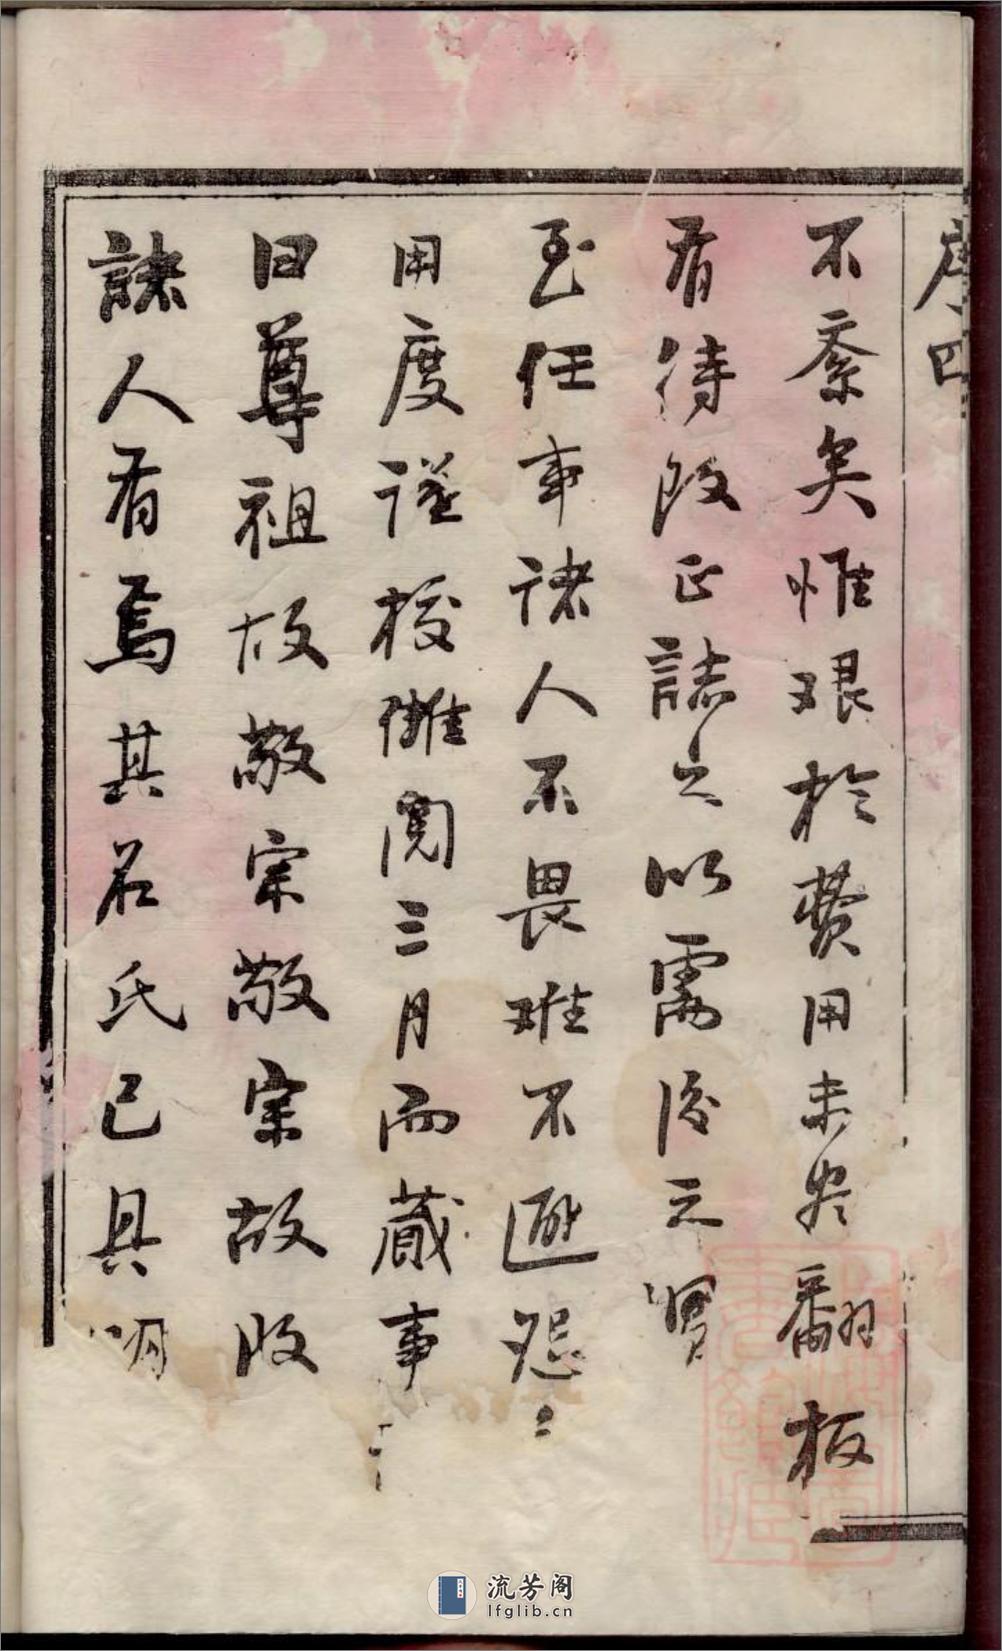 序四
不紊矣惟艱於費用未畢翻板
有待改正誌之以需後之
至任事諸人不畏難不避怨
用度謹校讎閱三月而蕆事
曰尊祖故敬宗敬宗故收
諸人有焉其名氏已具
流芳阁
lfglib.cn